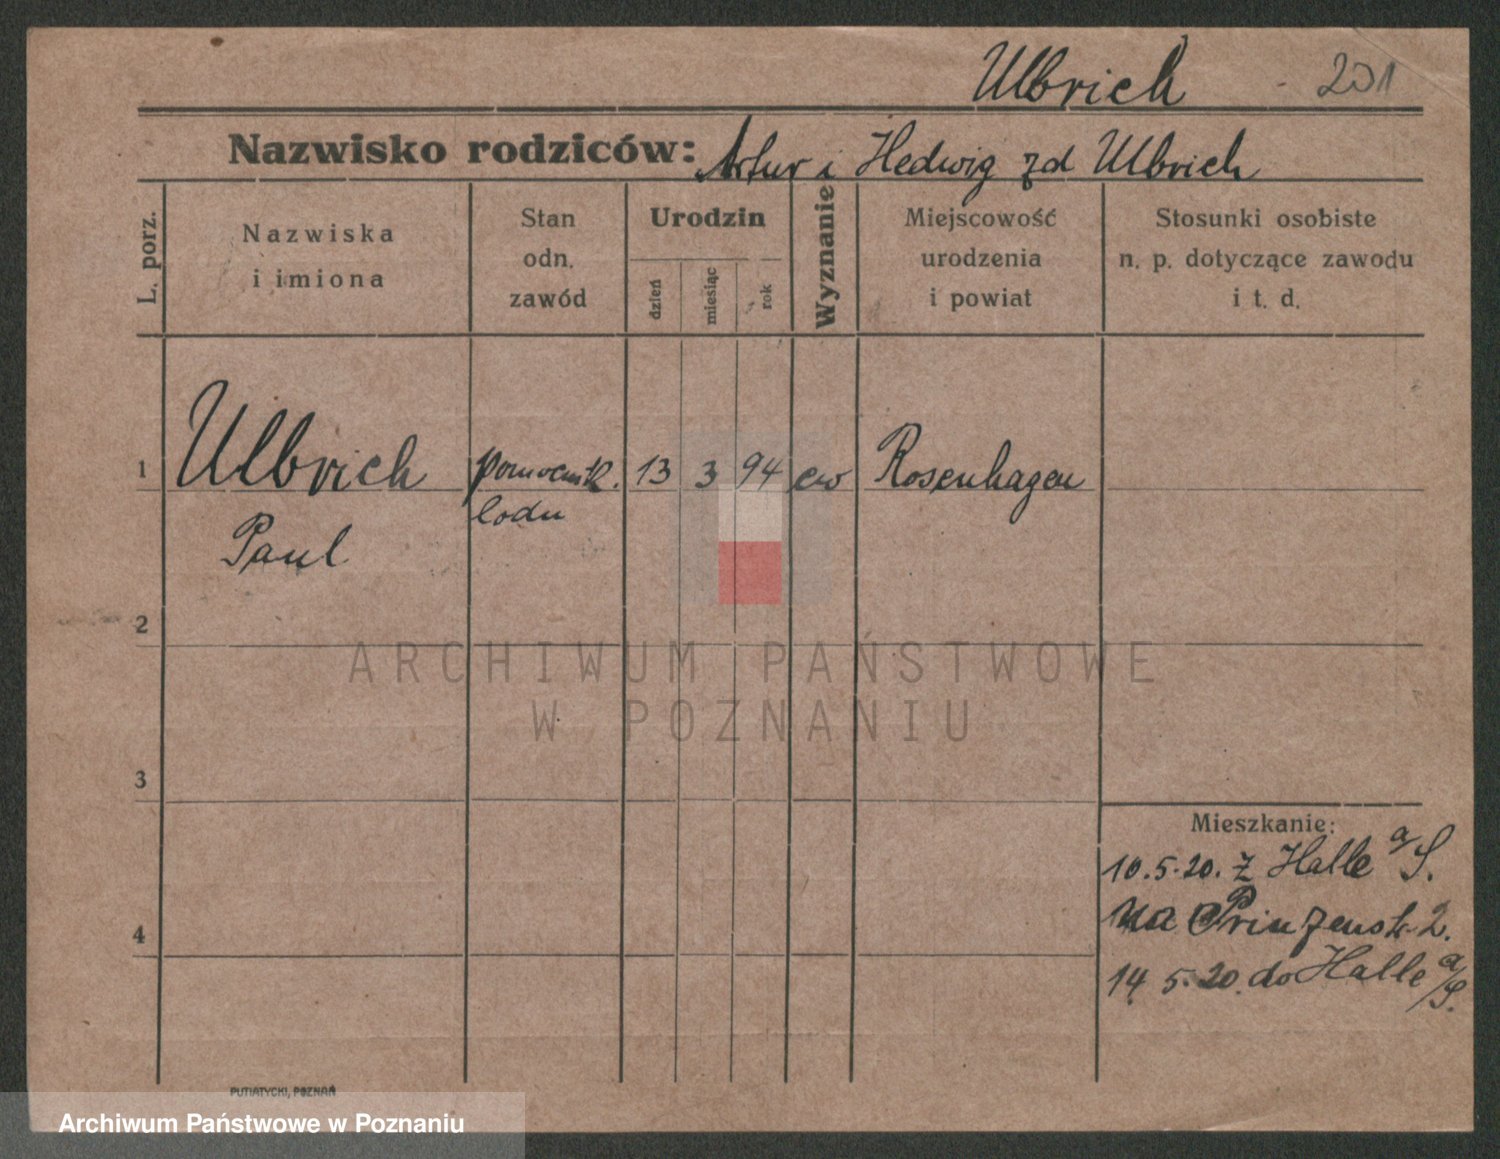 Ulbrich 201
Nazwisko rodziców: Artur i Hedwig zd Ulbrich
L. porz.
Nazwiska
i imiona
Stan
odn.
zawód
Urodzin
dzień
miesiąc
rok
Wyznanie
Miejscowość
urodzenia
i powiat
Stosunki osobiste
n. p. dotyczące zawodu
i t. d.
1 Ulbrich 13 3 94 ew Rosenhagen
Paul
2
3
4
Mieszkanie:
10.5.20. z Halle a/S.
na Prinzenstr 2.
14 5.20. do Halle a/S.
PUTIATYCKI, POZNAŃ
ARCHIWUM PAŃSTWOWE
W POZNANIU
Archiwum Państwowe w Poznaniu